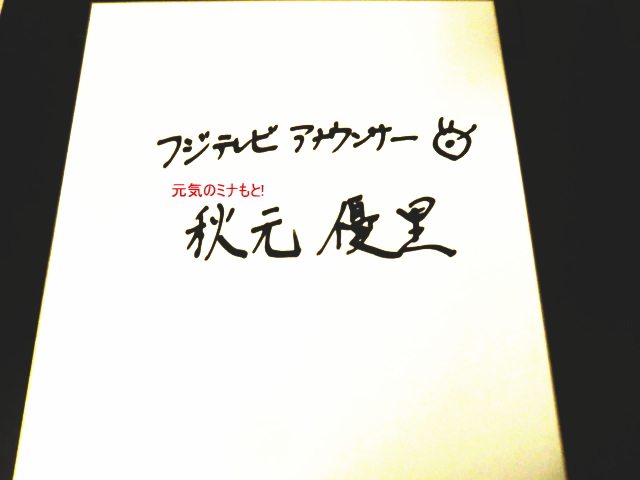 フジテレビ アナウンサー
元気のミナもと!
秋元 優里